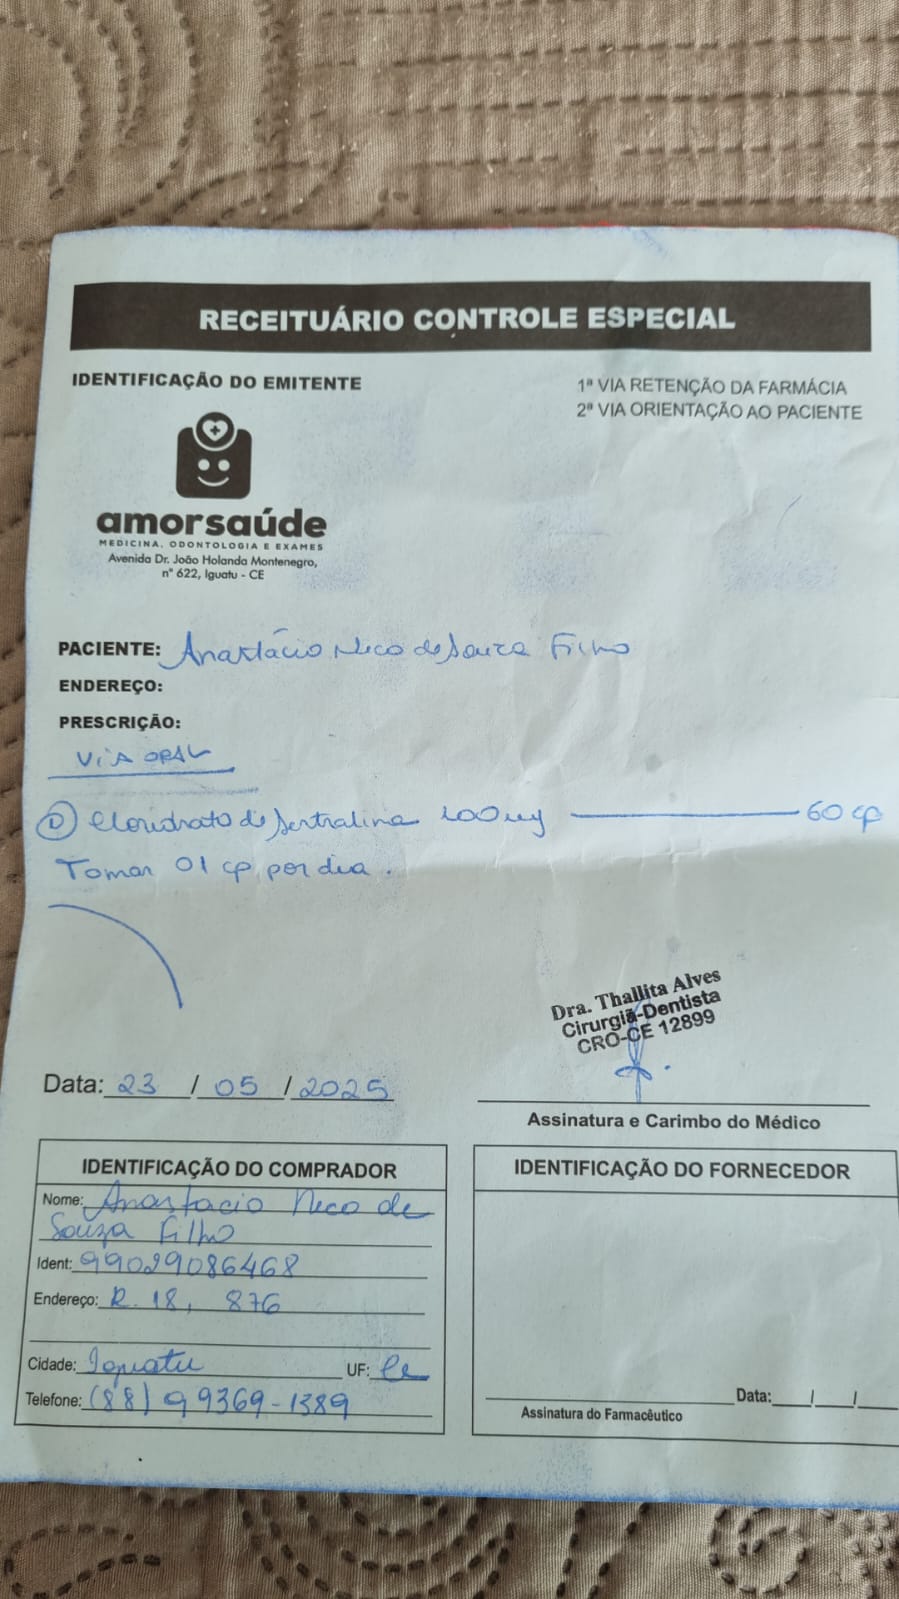 RECEITUÁRIO CONTROLE ESPECIAL
IDENTIFICAÇÃO DO EMITENTE
1ª VIA RETENÇÃO DA FARMÁCIA
2ª VIA ORIENTAÇÃO AO PACIENTE
amorsaúde
MEDICINA, ODONTOLOGIA E EXAMES
Avenida Dr. João Holanda Montenegro,
nº 622, Iguatu - CE
PACIENTE: Anastácio Neco de Souza Filho
ENDEREÇO:
PRESCRIÇÃO:
VIA ORAL
1) Cloridrato de Sertralina 100mg ———— 60 cp
Tomar 01 cp por dia.
Dra. Thallita Alves
Cirurgiã-Dentista
CRO-CE 12899
Data: 23 / 05 / 2025
Assinatura e Carimbo do Médico
IDENTIFICAÇÃO DO COMPRADOR
Nome: Anastacio Neco de
Souza Filho
Ident: 99029086468
Endereço: R. 18, 876
Cidade: Iguatu UF: Ce
Telefone: (88) 99369-1389
IDENTIFICAÇÃO DO FORNECEDOR
Data: __/__/__
Assinatura do Farmacêutico